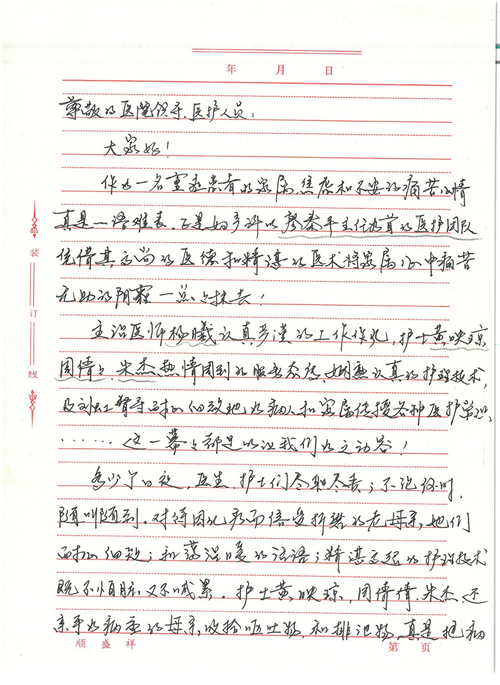 年 月 日
尊敬的医院领导、医护人员：
大家好！
作为一名重症患者的家属，焦虑和不安的痛苦心情
真是一语难表。正是妇产科以廖秦平主任为首的医护团队
凭借其高尚的医德和精湛的医术将家属心中痛苦
无助的阴霾一点点抹去！
主治医师杨曦认真严谨的工作作风，护士黄映琼、
周倩倩、宋杰热情周到的服务态度、娴熟认真的护理技术，
及刘护士长耐心细致地为病人和家属传授各种医护常识，
……这一幕幕都是以让我们为之动容！
多少个日夜，医生、护士们尽职尽责；不论何时，
随叫随到。对待因化疗而倍受折磨的老母亲，她们
耐心细致；和蔼温暖的话语；精湛的护理技术
既不怕脏又不喊累。护士黄映琼、周倩倩、宋杰还
亲手为病重的母亲，收拾呕吐物，和排泄物，真是把病
装订线
顺盛祥 第 页